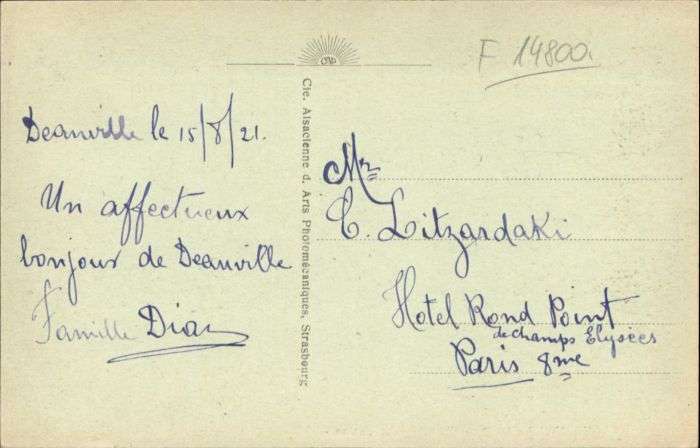 F 14800.
Deauville le 15/8/21.
Un affectueux
bonjour de Deauville
Famille
Cie. Alsacienne d. Arts Photomécaniques, Strasbourg
Mr
Litzardaki
Hotel Rond Point
de Champs Elysées
Paris 8me